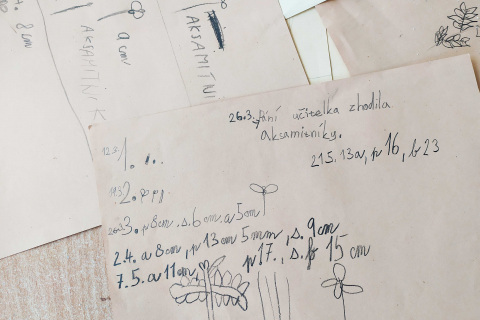 8 cm
AKSAMITNÍK
9 cm
AKSAMITNÍ
26.3. paní učitelka zhodila
aksamitníky.
21.5. 13a, p 16, b 23
12.3. 1.
19.3. 2.
26.3. 3. p 8 cm. s. 6 cm. a 5 cm
2.4. a 8 cm, p 13 cm 5 mm, s. 9 cm
7.5. a 11 cm, p 17., s. b 15 cm